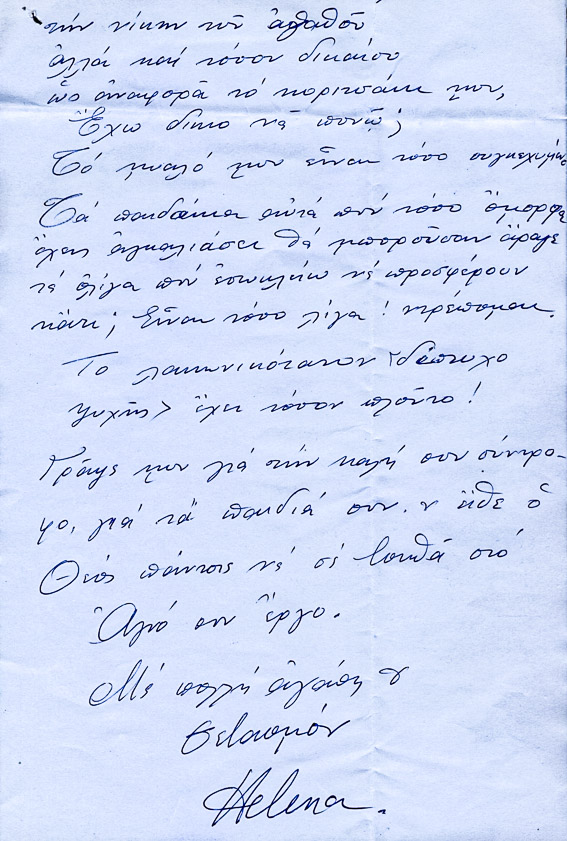 τήν νίκην τοῦ ἀγαθοῦ
ἀλλά καί τόσον δικαίου
ὡς ἀναφορά τό κοριτσάκι μου,
Ἔχω δίκιο νά πονῶ;
Τό μυαλό μου εἶναι τόσο συγκεχυμένο
Τά παιδάκια αὐτά πού τόσο ὄμορφα
ἔχεις ἀγκαλιάσει θά μποροῦσαν ἄραγε
τά λίγα πού ἐσωκλείω νά προσφέρουν
κάτι; Εἶναι τόσο λίγα! ντρέπομαι.
Το λακωνικότατον
ψυχῆς> ἔχει τόσον πλοῦτο!
Γράψε μου γιά τήν καλή σου σύντρο-
φο, γιά τά παιδιά σου. εἴθε ὁ
Θεός πάντοτε νά σέ βοηθᾶ στό
Ἅγιό σου ἔργο.
Μέ πολλή ἀγάπη
Σεβασμόν
Helena.